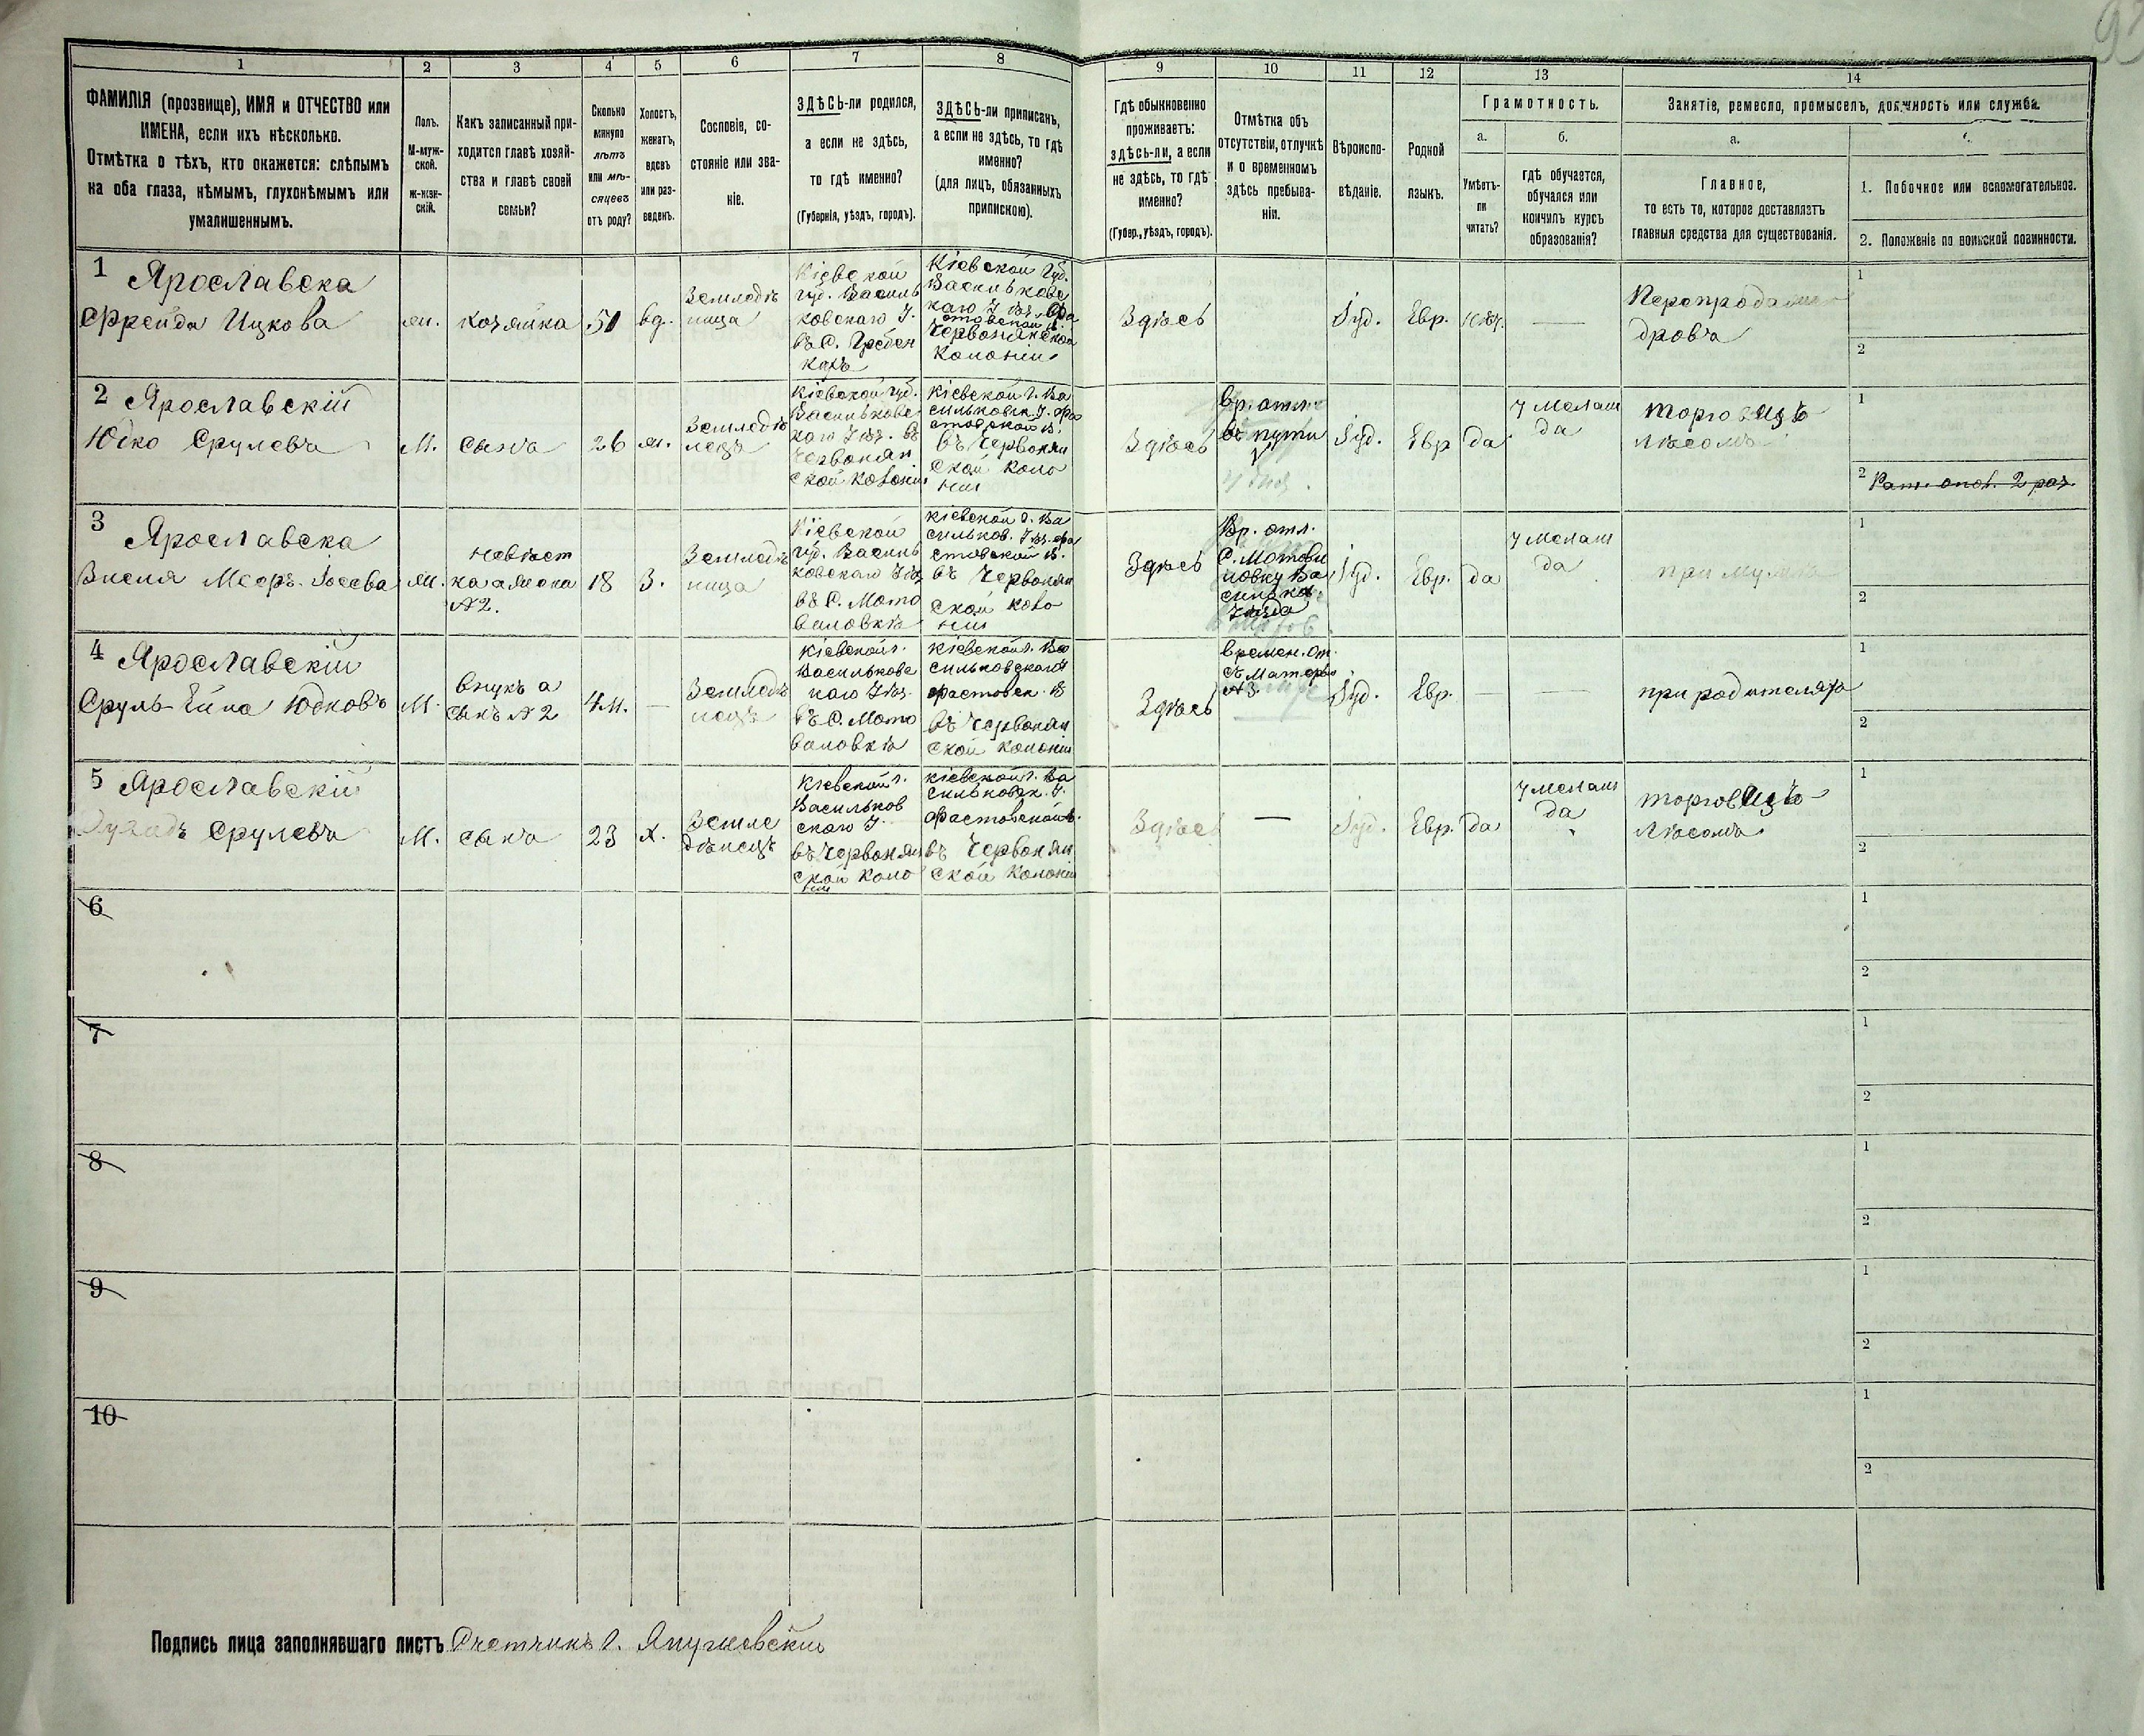 93
1
2
3
4
5
6
7
8
9
10
11
12
13
14
ФАМИЛІЯ (прозвище), ИМЯ и ОТЧЕСТВО или
ИМЕНА, если ихъ нѣсколько.
Отмѣтка о тѣхъ, кто окажется: слѣпымъ
на оба глаза, нѣмымъ, глухонѣмымъ или
умалишеннымъ.
Полъ.
М-муж-
ской.
Ж-жен-
скій.
Какъ записанный при-
ходится главѣ хозяй-
ства и главѣ своей
семьи?
Сколько
минуло
лѣтъ
или мѣ-
сяцевъ
отъ роду?
Холостъ,
женатъ,
вдовъ
или раз-
веденъ.
Сословіе, со-
стояніе или зва-
ніе.
ЗДѢСЬ-ли родился,
а если не здѣсь,
то гдѣ именно?
(Губернія, уѣздъ, городъ).
ЗДѢСЬ-ли приписанъ,
а если не здѣсь, то гдѣ
именно?
(для лицъ, обязанныхъ
припискою).
Гдѣ обыкновенно
проживаетъ:
здѣсь-ли, а если
не здѣсь, то гдѣ
именно?
(Губер., уѣздъ, городъ).
Отмѣтка объ
отсутствіи, отлучкѣ
и о временномъ
здѣсь пребыва-
ніи.
Вѣроиспо-
вѣданіе.
Родной
языкъ.
Грамотность.
а.
Умѣетъ-
ли
читать?
б.
гдѣ обучается,
обучался или
кончилъ курсъ
образованія?
Занятіе, ремесло, промыселъ, должность или служба.
а.
Главное,
то есть то, которое доставляетъ
главныя средства для существованія.
1. Побочное или вспомогательное.
2. Положеніе по воинской повинности.
1 Ярославска
Фрейда Ицкова
ж.
хозяйка
51
вд.
Земледѣ
лица
Кіевской
губ. Василь
ковскаго У.
въ С. Гребен
кахъ
Кіевской Губ.
Васильковс
каго Уѣз. Фа
стовской в.
Червонянской
Колоніи
Здѣсь
Іуд.
Евр.
нѣт.
—
Перепродажа
дровъ
1
2
2 Ярославскій
Юдко Срулевъ
М.
сынъ
26
ж.
Земледѣ
лецъ
Кіевской губ.
Васильковс
каго Уѣз. въ
Червонян
ской колоніи
Кіевской г. Ва
сильковск. У. Фа
стовской в.
въ Червонян
ской коло
ніи
Здѣсь
Вр. отл.
въ пути
Іуд.
Евр
да
у мелам
да
торговецъ
лѣсомъ
1
2 Рат. опол. 2 раз.
3 Ярославска
Меер-Іосева
ж.
невѣст
ка а жена
№2.
18
З.
Земледѣ
лица
Кіевской
губ. Василь
ковскаго Уѣз
въ С. Мото
виловкѣ
Кіевской г. Ва
сильков. Уѣз. Фа
стовской в.
въ Червонян
ской коло
ніи
Здѣсь
Вр. отл.
С. Мотови
ловку Ва
сильков.
Уѣзда
Іуд.
Евр.
да
у мелам
да
при мужѣ
1
2
4 Ярославскій
Сруль Юдковъ
М.
внукъ а
сынъ №2
4 м.
—
Земледѣ
лецъ
Кіевской г.
Васильковс
каго Уѣз.
въ С. Мото
виловкѣ
Кіевской г. Ва
сильковскаго У
Фастовск. В
въ Червонян
ской колоніи
Здѣсь
Времен. от.
съ Матерью
№3.
Іуд.
Евр.
—
—
при родителяхъ
1
2
5 Ярославскій
Срулевъ
М.
сынъ
23
х.
Земле
дѣлецъ
Кіевской г.
Васильков
скаго У.
въ Червонян
ской Коло
ніи
Кіевской г. Ва
сильковск. У.
Фастовской в.
въ Червонян
ской Колоніи
Здѣсь
—
Іуд.
Евр.
да
у мелам
да
торговецъ
лѣсомъ
1
2
6
1
2
7
1
2
8
1
2
9
1
2
10
1
2
Подпись лица заполнявшаго листъ Счетчикъ